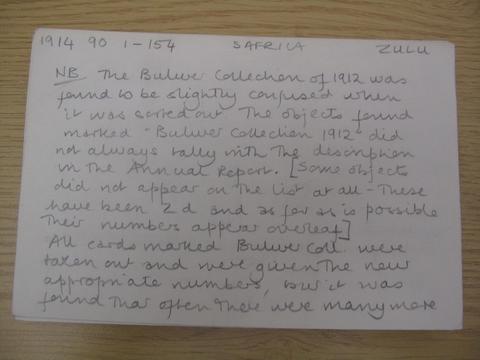 1914 90 1-154 S AFRICA ZULU
NB. The Bulwer Collection of 1912 was
found to be slightly confused when
it was sorted out. The objects found
marked "Bulwer Collection 1912" did
not always tally with the description
in the Annual Report. [Some objects
did not appear on the list at all - These
have been Zd and as far as is possible
their numbers appear overleaf]
All cards marked Bulwer Coll. were
taken out and were given the new
appropriate numbers, but it was
found that often there were many more